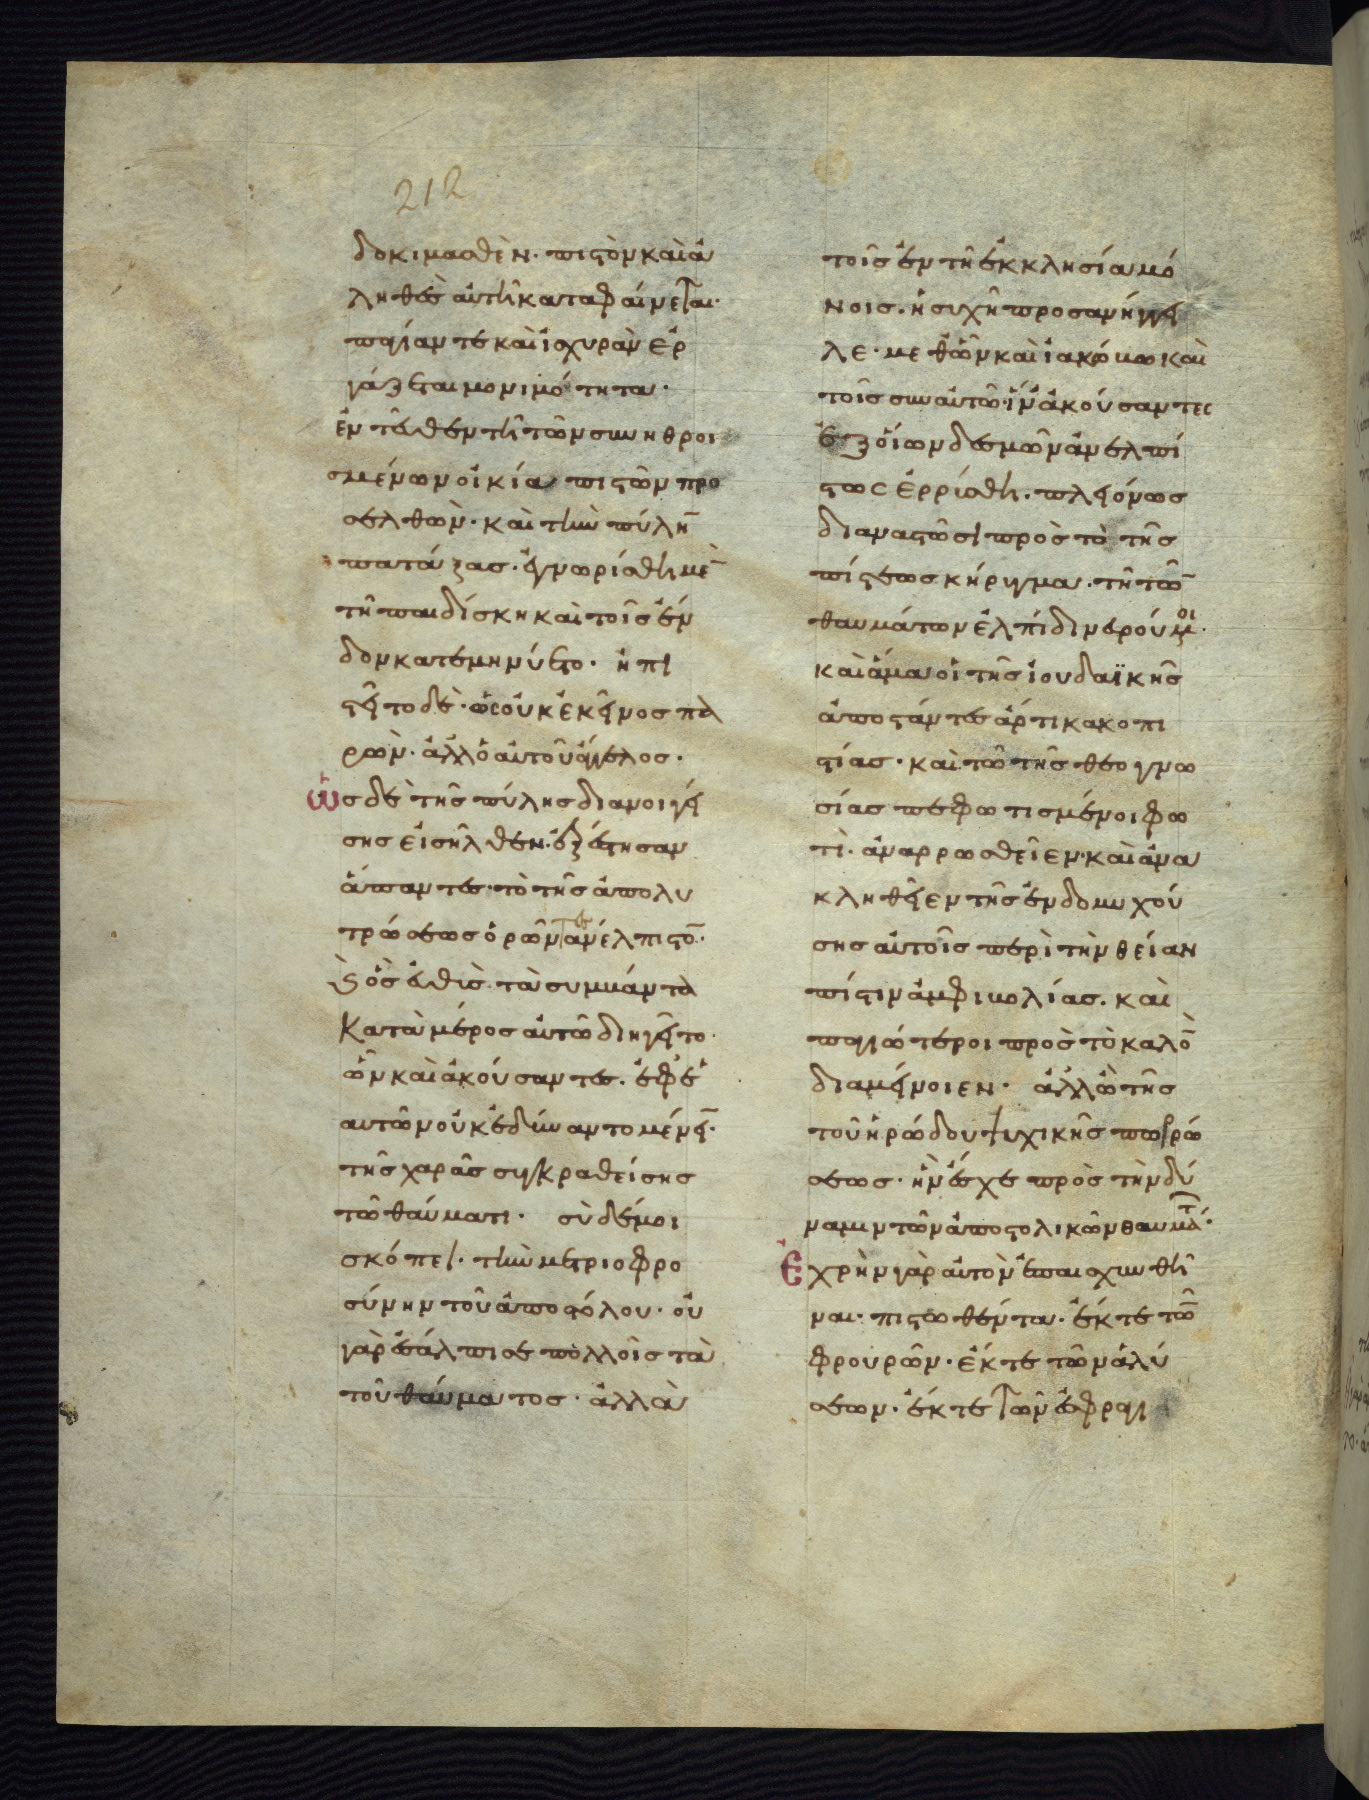 212
δοκιμασθὲν· πιστὸν καὶ ἀ
ληθὲς αὐτῆ καταφαίνεται·
παγίαν τὲ καὶ ἰσχυρὰν ἐρ
γάζεται μονιμότητα·
ἐντεῦθεν τῆ τῶν συνηθροι
σμένων οἰκία πιστῶν προ
σελθὼν· καὶ τὴν πύλην
πατάξας· ἐγνωρίσθη μὲν
τῆ παιδίσκη καὶ τοῖς ἔν
δον κατεμηνύετο· ἠπι
στεῖτο δὲ· ὡς οὐκ ἐκεῖνος πα
ρὼν· ἀλλ' ὁ αὐτοῦ ἄγγελος·
ὡς δὲ τῆς πύλης διανοιγεί
σης εἰσῆλθεν· ἐξέστησαν
ἅπαντες· τὸ τῆς ἀπολυ
τρώσεως ὁρῶντες ἀνέλπιστον·
ὃς εὐθὺς τὰ συμβάντα
κατὰ μέρος αὐτῶ διηγεῖτο·
ὧν καὶ ἀκούσαντες· ἐφ' ἑ
αυτῶν οὐκ ἐδύναντο μένειν·
τῆς χαρᾶς συγκραθείσης
τῶ θαύματι· σὺ δέ μοι
σκόπει· τὴν μετριοφρο
σύνην τοῦ ἀποστόλου· οὐ
γὰρ ἐσάλπισε πολλοῖς τὰ
τοῦ θαύματος· ἀλλὰ
τοῖς ἐν τῆ ἐκκλησία μό
νοις· ἡσυχῆ προσανήγγει
λε· μεθ' ὧν καὶ ἰακώβω καὶ
τοῖς σὺν αὐτῶ· ἵν' ἀκούσαντες
ἐξ οἵων δεσμῶν ἀνελπί
στως ἐρρύσθη· πλειόνως
διαναστῶσι πρὸς τὸ τῆς
πίστεως κήρυγμα· τῆ τῶν
θαυμάτων ἐλπίδι νευρούμενοι·
καὶ ἅμα οἱ τῆς ἰουδαϊκῆς
ἀποστάντες ἄρτι κακοπι
στίας· καὶ τῶ τῆς θεογνω
σίας πεφωτισμένοι φω
τὶ· ἀναρρωσθεῖεν· καὶ ἀνα
κληθεῖεν τῆς ἐνδομυχού
σης αὐτοῖς περὶ τὴν θείαν
πίστιν ἀμφιβολίας· καὶ
παγιώτεροι πρὸς τὸ καλὸν
διαμείνοιεν· ἀλλ' ὢ τῆς
τοῦ ἡρώδου ψυχικῆς πωρώ
σεως· ἣν ἔσχε πρὸς τὴν δύ
ναμιν τῶν ἀποστολικῶν θαυμάτων·
ἐχρῆν γὰρ αὐτὸν ἐπαισχυνθῆ
ναι· πιστωθέντα· ἔκ τε τῶν
φρουρῶν· ἔκ τε τῶν ἁλύ
σεων· ἔκ τε τῶν ἐσφραγι